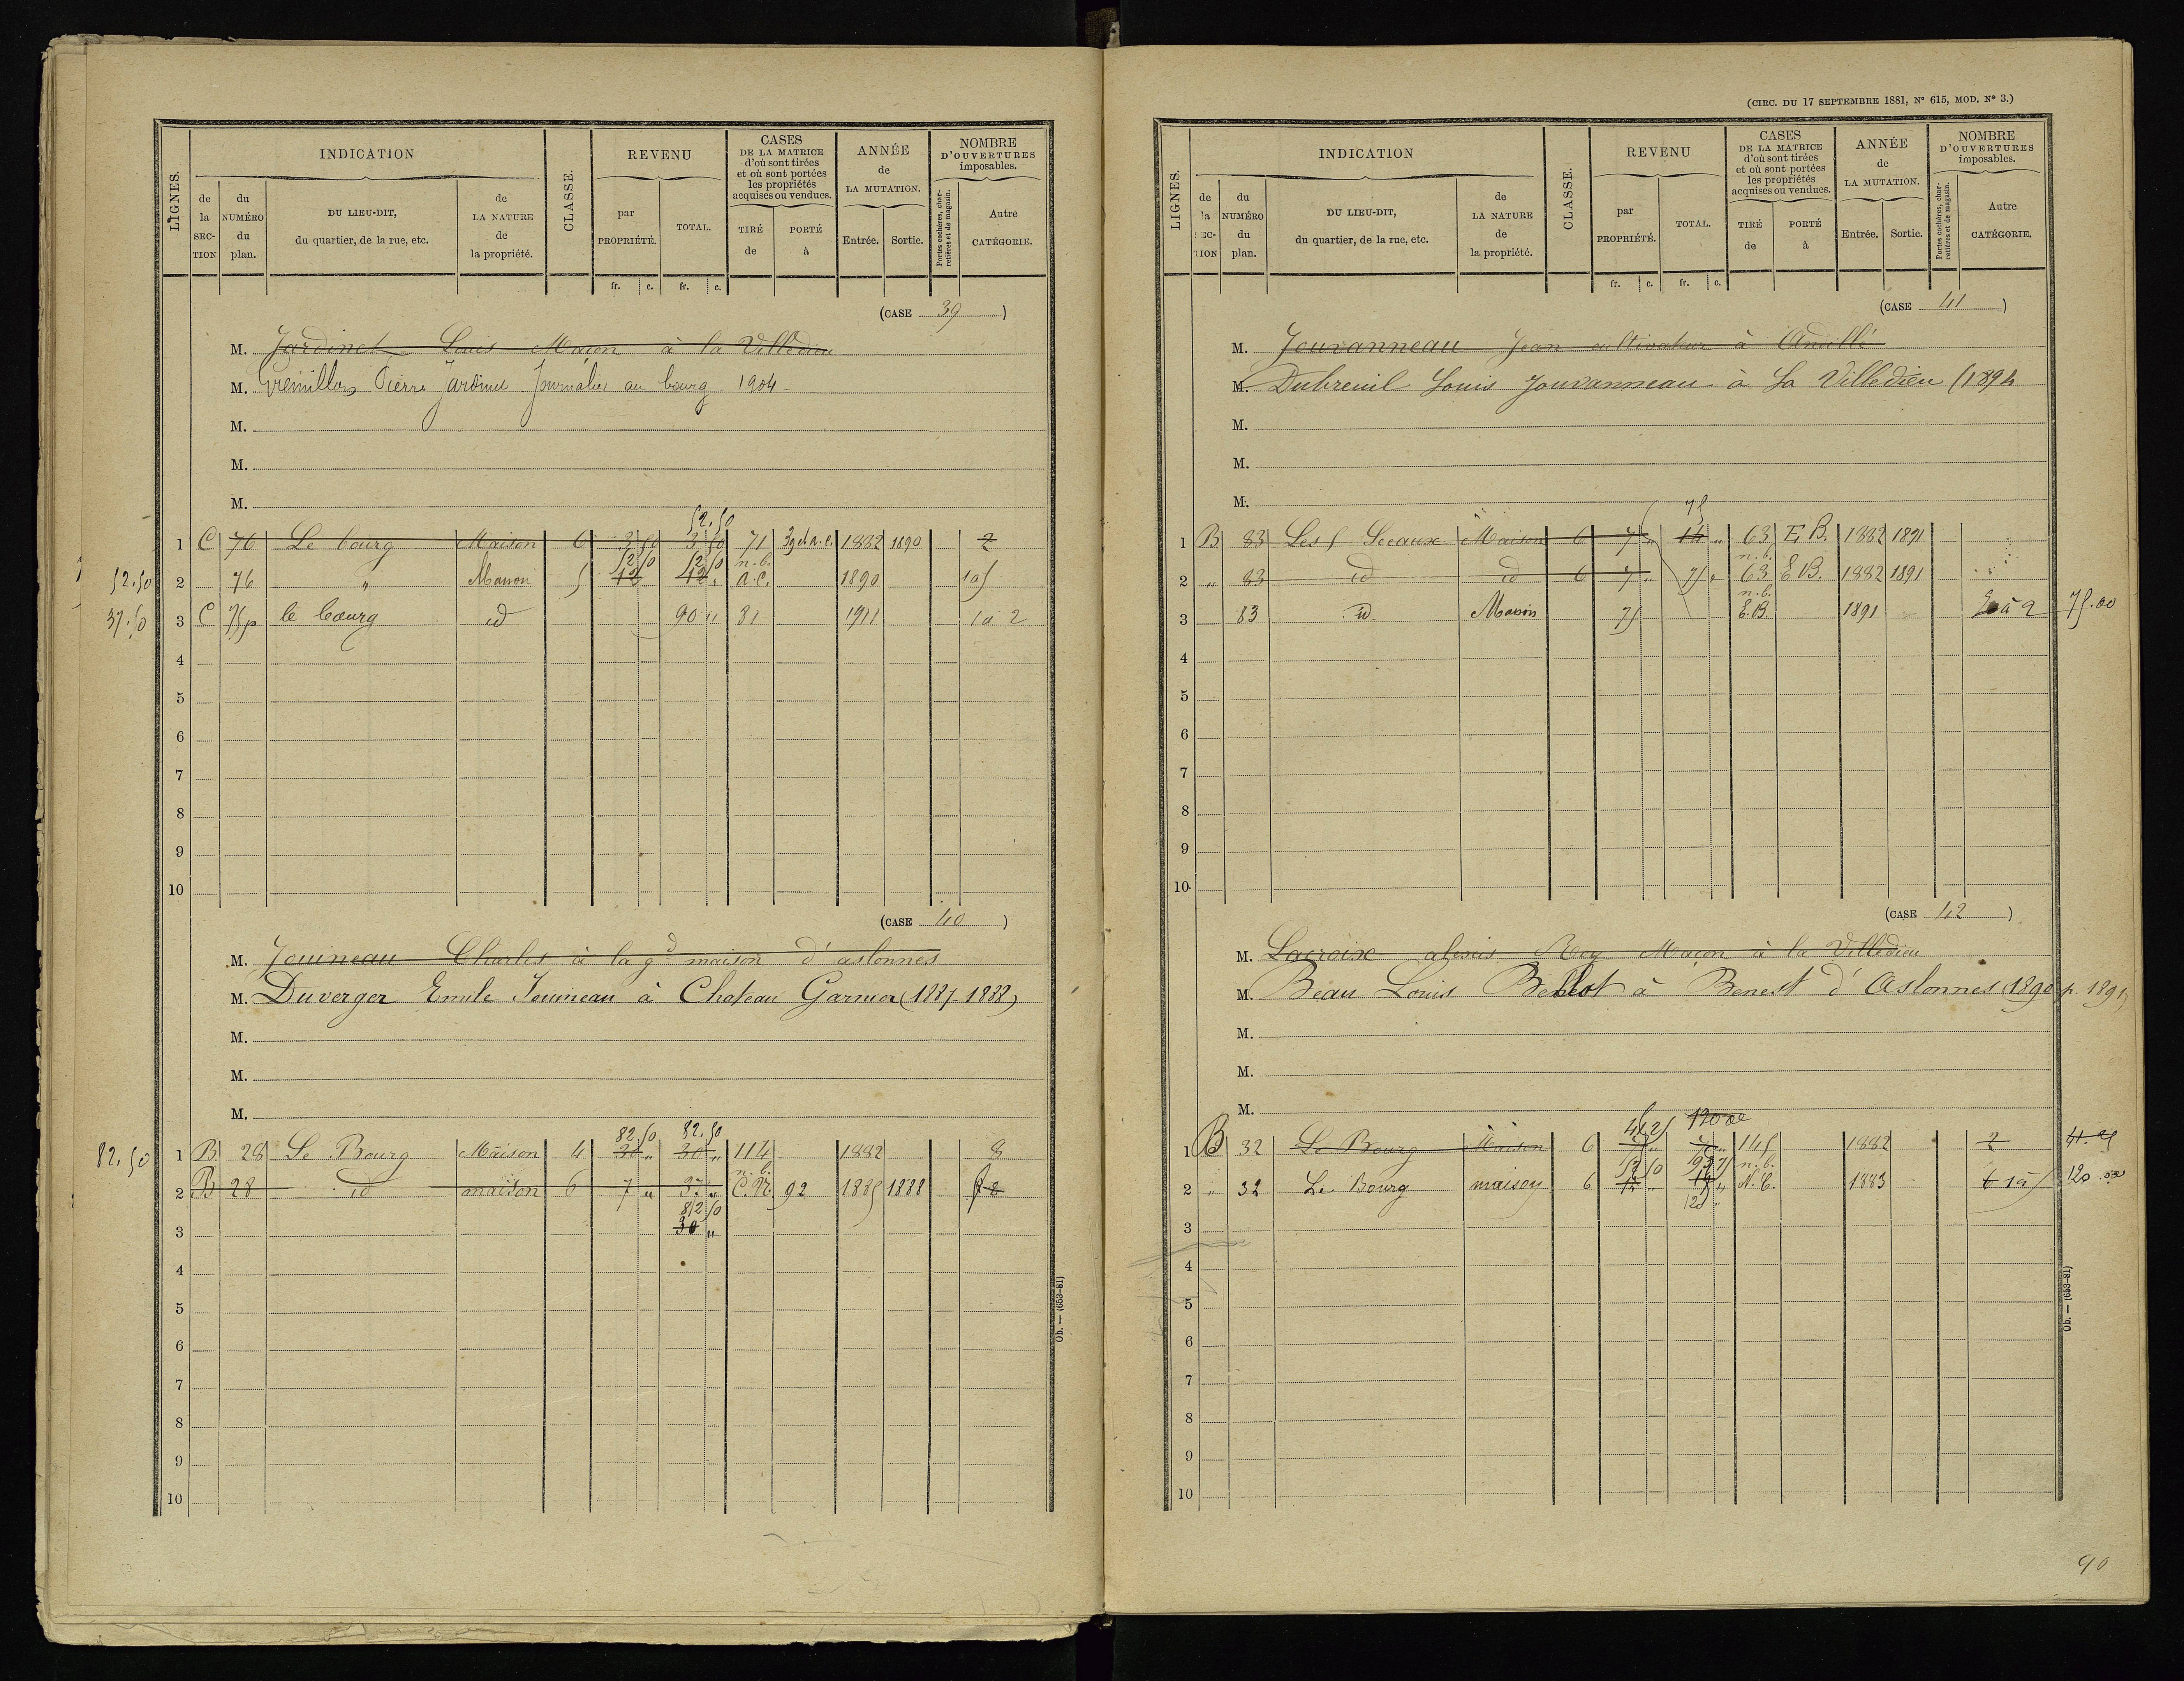 LIGNES.
INDICATION
de la SECTION
du NUMÉRO du plan.
DU LIEU-DIT, du quartier, de la rue, etc.
de LA NATURE de la propriété.
CLASSE.
REVENU
par PROPRIÉTÉ.
TOTAL.
CASES DE LA MATRICE d'où sont tirées et où sont portées les propriétés acquises ou vendues.
TIRÉ de
PORTÉ à
ANNÉE de LA MUTATION.
Entrée. Sortie.
NOMBRE D'OUVERTURES imposables.
Portes cochères, charretières et de magasin.
Autre CATÉGORIE.
fr. c. fr. c.
(CASE 39)
M. Jardinet Louis Maçon à la Villedieu
M. Pierre Jardinet Journalier au bourg 1904
M.
M.
M.
52.50
1 C 76 Le bourg Maison 6 3 50 3 50 71 39 et a.c. 1882 1890 2
52 50 52 50 n.b.
52.50 2 76 " Maison 5 12 12 " a.c. 1890 1 à 5
37.50 3 C 75p le bourg id 90 " 81 1911 1 à 2
4
5
6
7
8
9
10
(CASE 40)
M. Jouineau Charles à la gd maison d'aslonnes
M. Duverger Emile Jouineau à Chateau Garnier (1887-1888)
M.
M.
M.
82.50 82.50
82.50 1 B 28 Le Bourg Maison 4 30 " 30 " 114 1882 8
n.b.
2 B 28 id maison 6 7 " 37 " C.N. 92 1885 1888 8
82 50
3 30 "
4
5
6
7
8
9
10
Ob. — (653-81)
(CIRC. DU 17 SEPTEMBRE 1881, N° 615, MOD. N° 3.)
LIGNES.
INDICATION
de la SECTION
du NUMÉRO du plan.
DU LIEU-DIT, du quartier, de la rue, etc.
de LA NATURE de la propriété.
CLASSE.
REVENU
par PROPRIÉTÉ.
TOTAL.
CASES DE LA MATRICE d'où sont tirées et où sont portées les propriétés acquises ou vendues.
TIRÉ de
PORTÉ à
ANNÉE de LA MUTATION.
Entrée. Sortie.
NOMBRE D'OUVERTURES imposables.
Portes cochères, charretières et de magasin.
Autre CATÉGORIE.
fr. c. fr. c.
(CASE 41)
M. Jouvanneau Jean cultivateur à Andillé
M. Dubreuil Louis Jouvanneau à La Villedieu (1894
M.
M.
M.
75
1 B 83 Les Maison 6 7 " 14 " 63 E.B. 1882 1891
n.b.
2 " 83 id id 6 7 " 75 " 63 E.B. 1882 1891
n.b.
3 83 id Maison 75 E.B. 1891 à 2 75.00
4
5
6
7
8
9
10
(CASE 42)
M. Lacroix alexis Roy Maçon à la Villedieu
M. Beau Louis à Benest d'Aslonnes (1890 p. 1891)
M.
M.
M.
41 25 120 00
1 B 32 Le Bourg Maison 6 7 " 7 " 145 1882 2
52 50 n.b.
2 " 32 Le Bourg maison 6 12 " N.C. 1883 1 à 5 120.00
120 "
3
4
5
6
7
8
9
10
Ob. — (653-81)
90